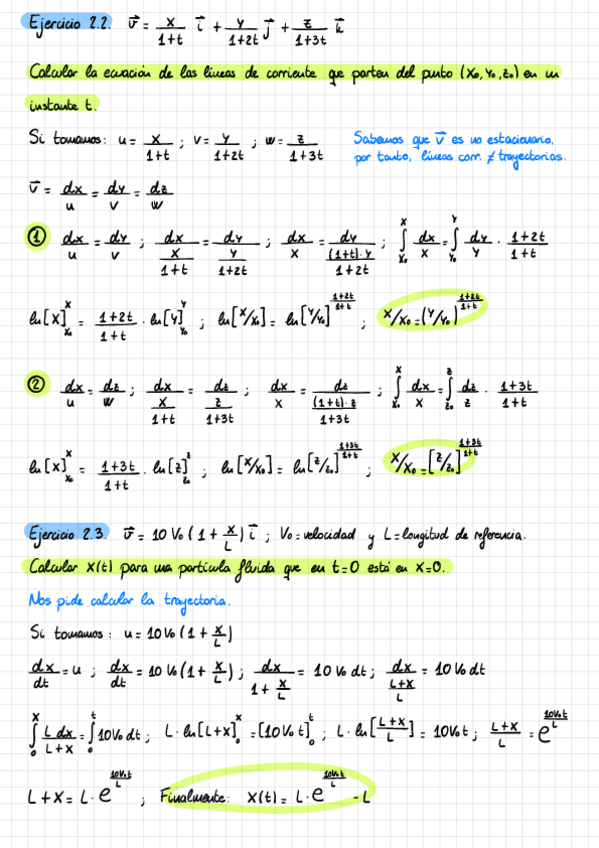 Ejercicio 2.2. v⃗ = x/(1+t) i⃗ + y/(1+2t) j⃗ + z/(1+3t) k⃗
Calcular la ecuación de las líneas de corriente que parten del punto (x₀, y₀, z₀) en un
instante t.
Si tomamos: u = x/(1+t) ; v = y/(1+2t) ; w = z/(1+3t)
Sabemos que v⃗ es no estacionario,
por tanto, líneas corr. ≠ trayectorias.
v⃗ = dx/u = dy/v = dz/w
① dx/u = dy/v ; dx/(x/(1+t)) = dy/(y/(1+2t)) ; dx/x = dy/((1+t)·y/(1+2t)) ; ∫ₓ₀ˣ dx/x = ∫ᵧ₀ʸ dy/y · (1+2t)/(1+t)
ln[x]ₓ₀ˣ = (1+2t)/(1+t) · ln[y]ᵧ₀ʸ ; ln[x/x₀] = ln[y/y₀]^((1+2t)/(1+t)) ; x/x₀ = (y/y₀)^((1+2t)/(1+t))
② dx/u = dz/w ; dx/(x/(1+t)) = dz/(z/(1+3t)) ; dx/x = dz/((1+t)·z/(1+3t)) ; ∫ₓ₀ˣ dx/x = ∫z₀^z dz/z · (1+3t)/(1+t)
ln[x]ₓ₀ˣ = (1+3t)/(1+t) · ln[z]z₀^z ; ln[x/x₀] = ln[z/z₀]^((1+3t)/(1+t)) ; x/x₀ = [z/z₀]^((1+3t)/(1+t))
Ejercicio 2.3. v⃗ = 10 V₀ (1 + x/L) i⃗ ; V₀ = velocidad y L = longitud de referencia.
Calcular x(t) para una partícula fluida que en t=0 está en x=0.
Nos pide calcular la trayectoria.
Si tomamos: u = 10 V₀ (1 + x/L)
dx/dt = u ; dx/dt = 10 V₀ (1 + x/L) ; dx/(1 + x/L) = 10 V₀ dt ; dx/((L+x)/L) = 10 V₀ dt
∫₀ˣ L dx/(L+x) = ∫₀ᵗ 10V₀ dt ; L · ln[L+x]₀ˣ = [10V₀ t]₀ᵗ ; L · ln[(L+x)/L] = 10V₀t ; (L+x)/L = e^(10V₀t/L)
L + x = L · e^(10V₀t/L) ; Finalmente: x(t) = L · e^(10V₀t/L) - L